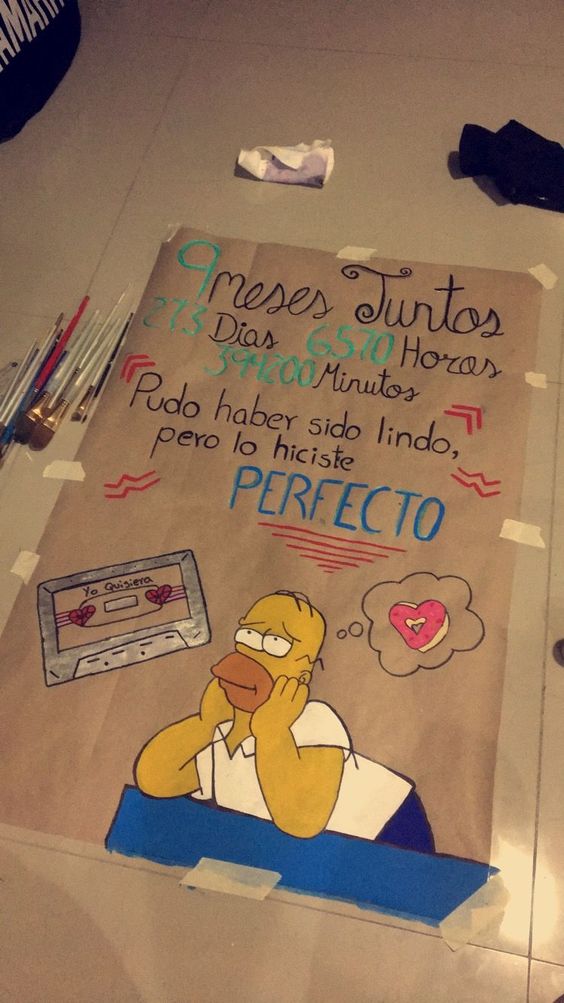 9 meses Juntos
273 Dias 6570 Horas
394200 Minutos
Pudo haber sido lindo,
pero lo hiciste
PERFECTO
Yo Quisiera